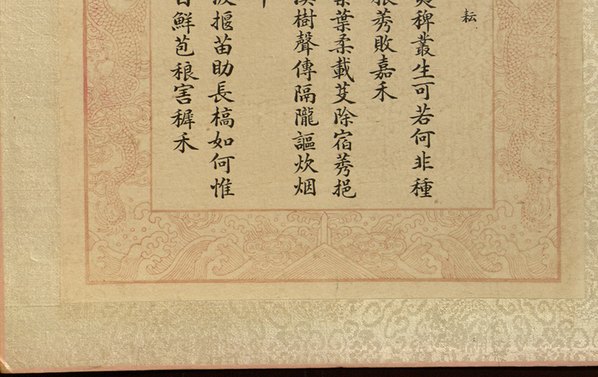 耘
稗叢生可若何非種
莠敗嘉禾
葉柔載芟除宿莠挹
樹聲傳隔隴謳炊烟
揠苗助長槁如何惟
鮮苞稂害穉禾